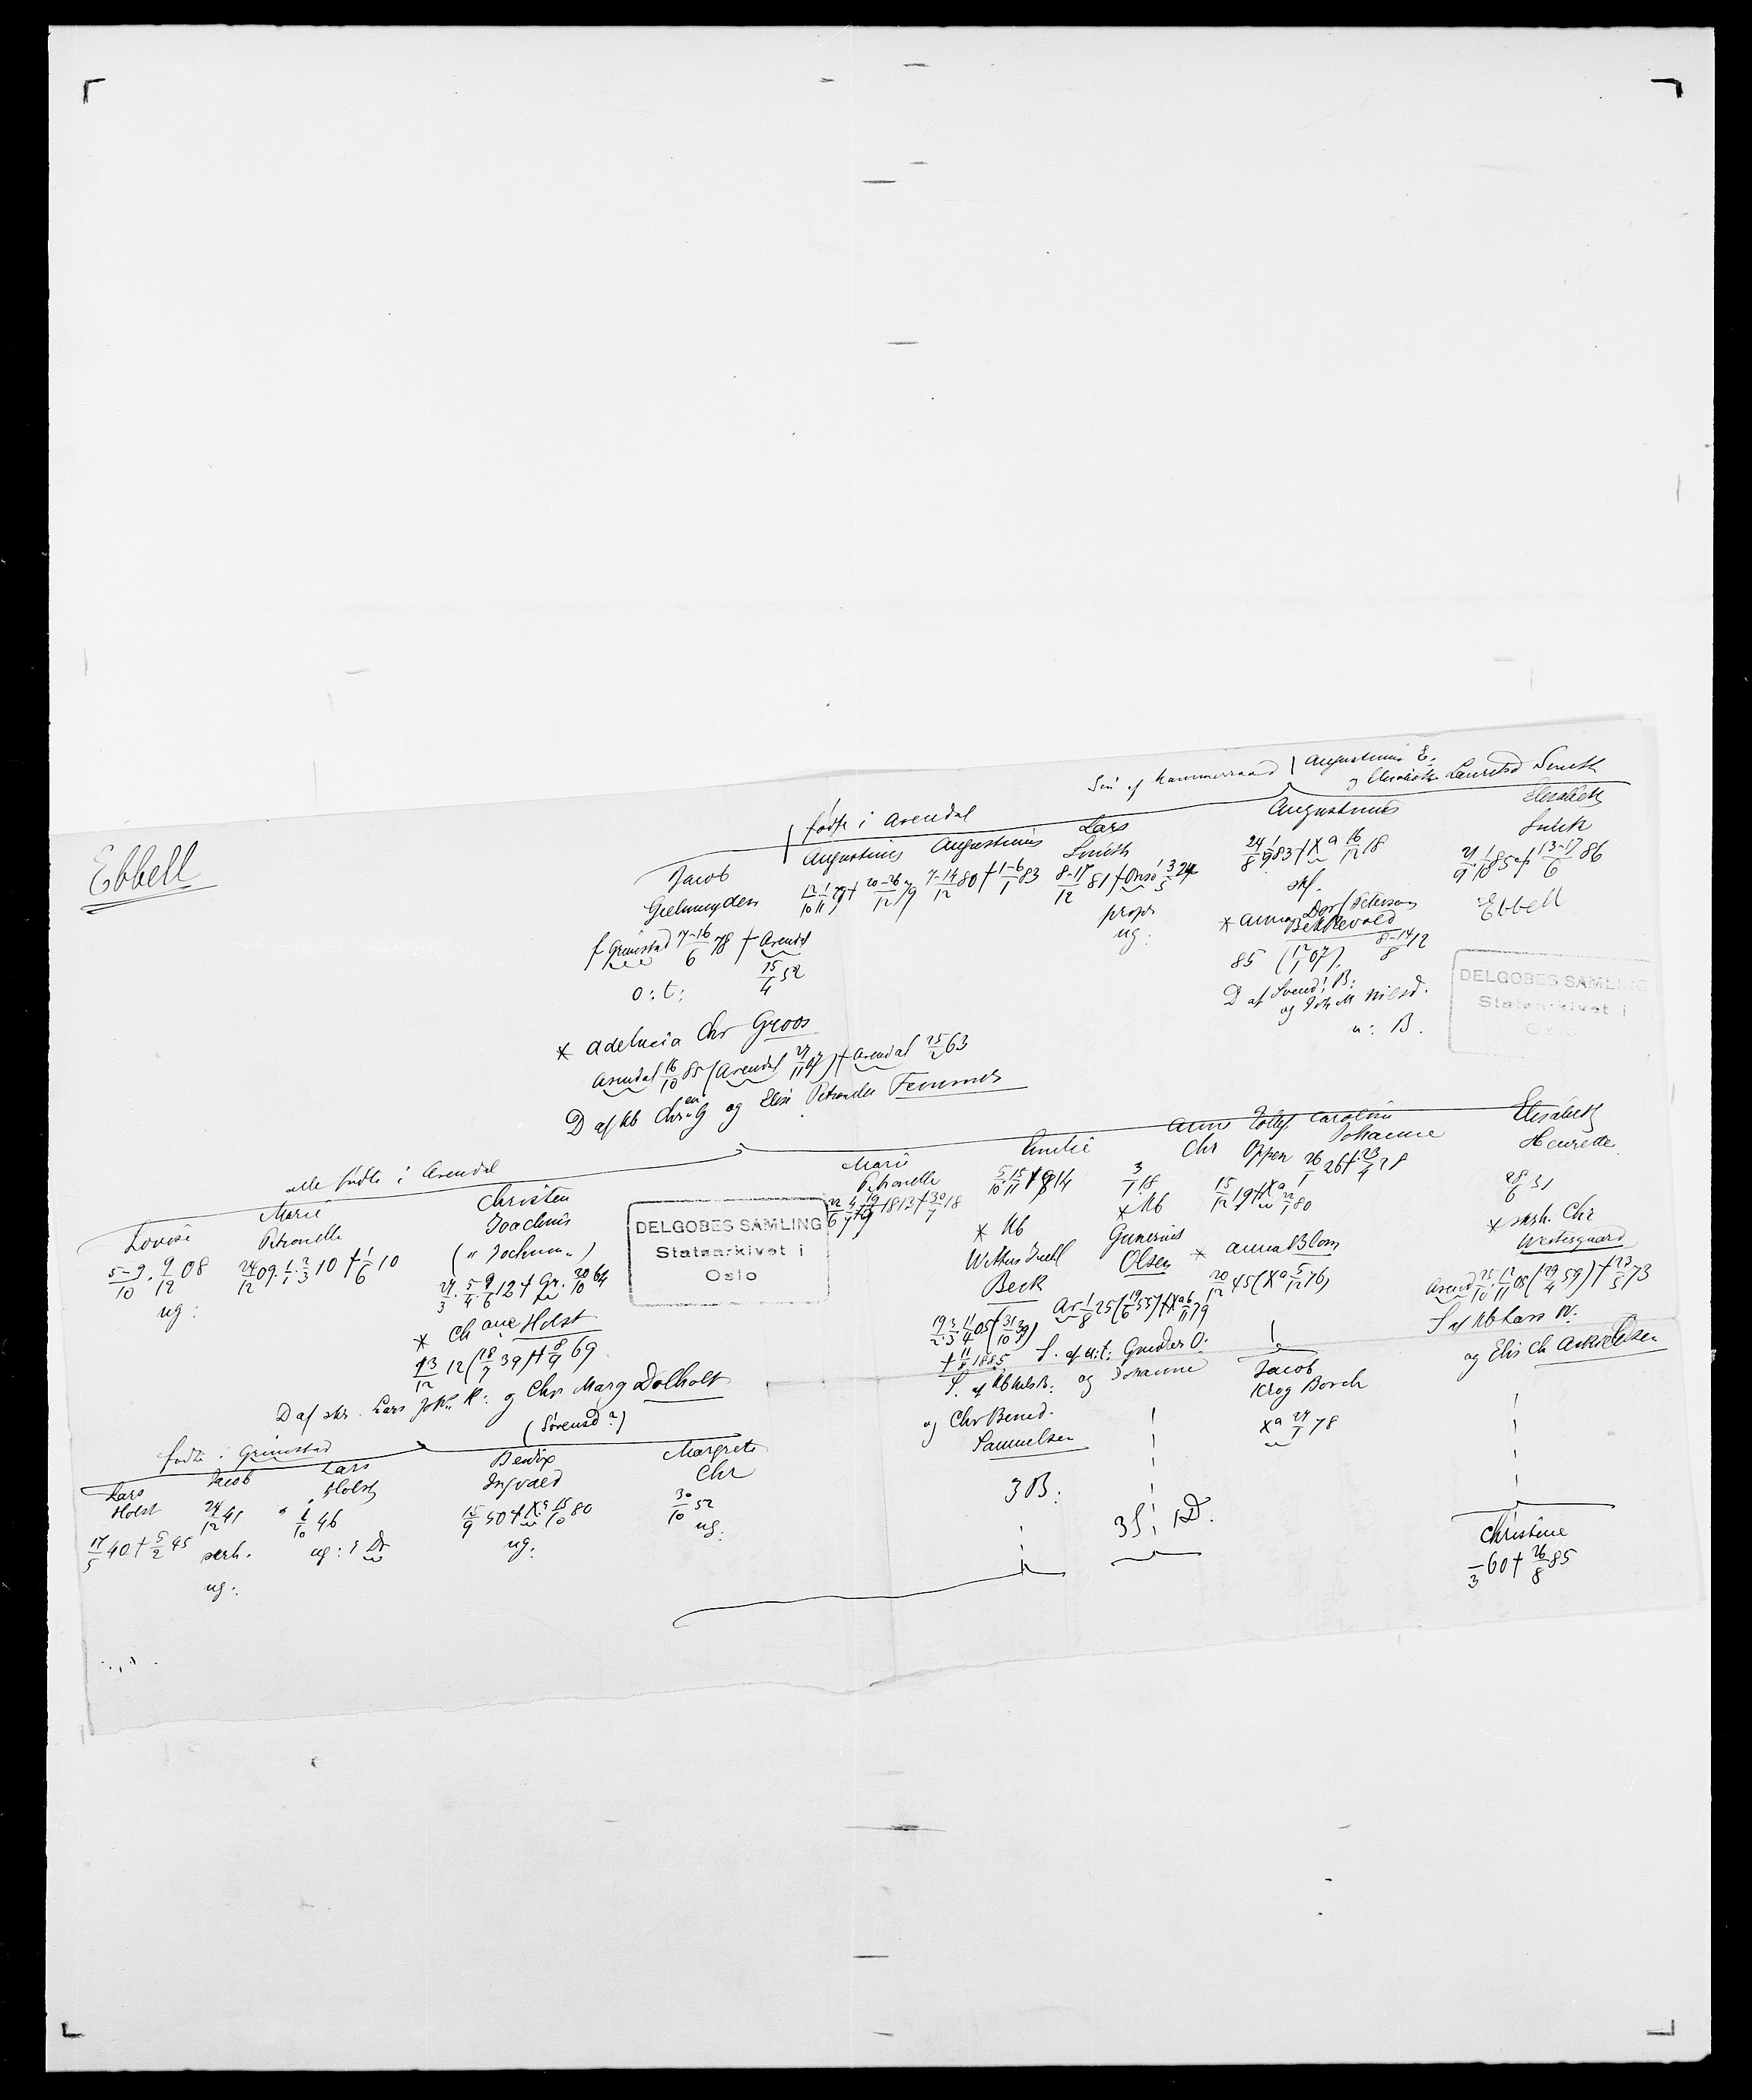 Ebbell
Søn af Kammerraad Augustinus E.
og Elisabeth Lauritsd Smith
fødte i Arendal
Jacob
Gielmuyden
f Grimstad 7-16/6 78 † Arendal
15/4 52
o: t:
Augustinus
Augustinus
7-14/12 80 † 1-6/1 83
Lars
Smith
8-17/12 81 † Onsø 3/5 24
propr
ug:
Augustinus
24/8 1/9 83 † Xa 16/12 18
skf.
* Anna Dor Peterson
Bekkevold
85 (12/1 07) 8-14/8 12
D af Svend B:
og Nilsd.
u: B.
Elisabeth
Smith
13-17/6 86
Ebbell
DELGOBES SAMLING
Statsarkivet i
Oslo
* Adelucia Chr Groos
Arendal 16/10 85 (Arendal 27/11 07) † Arendal 25/2 63
D af Kb Chr.en G og Elise Petronelle Femmer
alle fødte i Arendal
Lovise
5-9/10 . 9/12 08
ug:
Marie
Petronelle
24/12 09. 1/1. 2/3 10 † 1/6 10
Christen
Joachim
(" Jochum ")
27/3. 5/4. 9/6 12 † Gr. 20/10 64
* Ch ane Holst
13/12 12 (18/7 39) † 8/9 69
D af skr. Lars Joh. H: og Chr Marg Dolholt
(Sørensd?)
DELGOBES SAMLING
Statsarkivet i
Oslo
Marie
Petronelle
1813 † 30/7 18
Emilie
5/10 15/11 14
* Kb
Beck
19/2 3/3 11/4 05 (31/10 39)
† 11/8 1885
S. af Kb Nels B:
og Chr Bened.
Samuelsen
3 B:
Anne
Chr
3/1 18
* Kb
Gunerius
Olsen
Ar 1/8 25 (19/6 55) † Xa 6/11 79
S. af u:t: Gunder O:
og Johanne
3 S: 1 D.
Tolly
Oppen
15/12 19 † Xa 22/1 80
* Anna Blom
20/12 45 (Xa 5/12 76)
Jacob
Krog Borch
Xa 27/1 78
Caroline
Johanne
26/1 26 † 23/4 28
Elisabeth
Henrede
28/6 31
* sksh. Chr
Westergaard
Arend 25/10. 12/11 08 (29/4 59) † 23/5 73
S af Kb Lars W:
og Elis Ch
Christine
/3 60 † 26/8 85
fødte i Grimstad
Lars
Holst
17/5 40 † 5/2 45
Jacob
24/12 41
ug:
Lars
Holst
1/10 46
ug:
Bendix
Ingvald
15/9 50 † Xa 15/10 80
ug:
Margrete
Chr
30/10 52
ug: